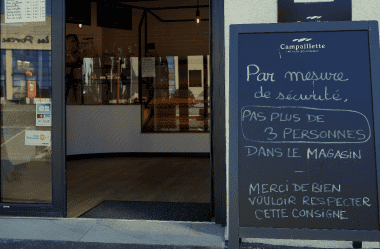 Campaillette
Par mesure
de sécurité,
PAS PLUS DE
3 PERSONNES
DANS LE MAGASIN
MERCI DE BIEN
VOULOIR RESPECTER
CETTE CONSIGNE